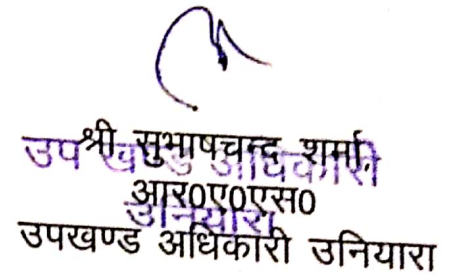 श्री सुभाषचन्द्र शर्मा,
उप खण्ड अधिकारी
आर0ए0एस0
उनियारा
उपखण्ड अधिकारी उनियारा